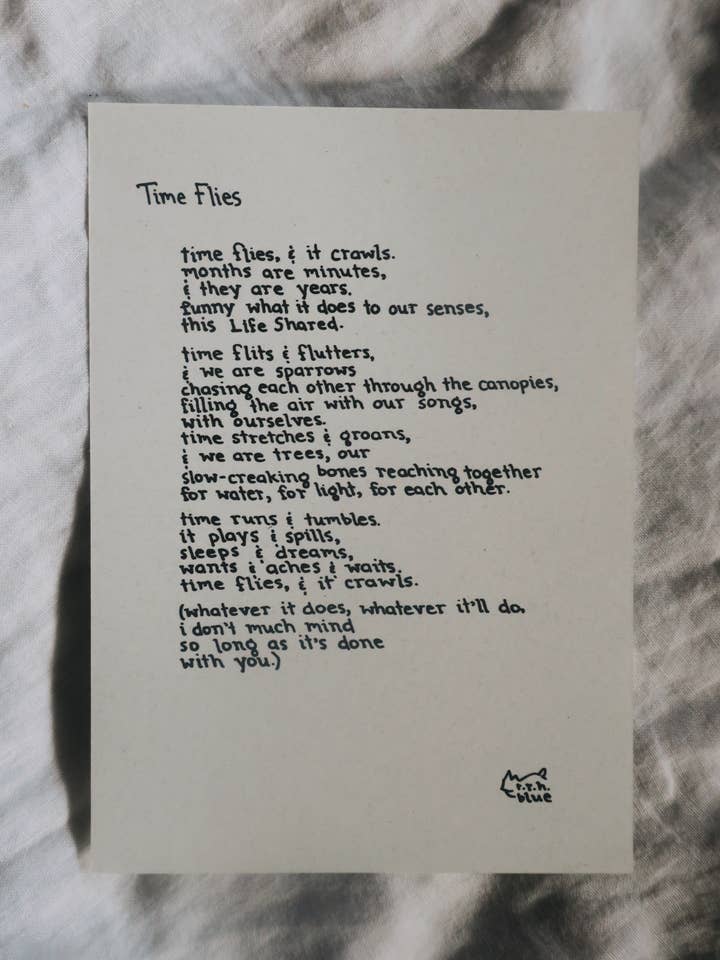 Time Flies
time flies, & it crawls.
months are minutes,
& they are years.
funny what it does to our senses,
this Life Shared.
time flits & flutters,
& we are sparrows
chasing each other through the canopies,
filling the air with our songs,
with ourselves.
time stretches & groans,
& we are trees, our
slow-creaking bones reaching together
for water, for light, for each other.
time runs & tumbles.
it plays & spills,
sleeps & dreams,
wants & aches & waits.
time flies, & it crawls.
(whatever it does, whatever it'll do,
i don't much mind
so long as it's done
with you.)
r.r.h.
blue